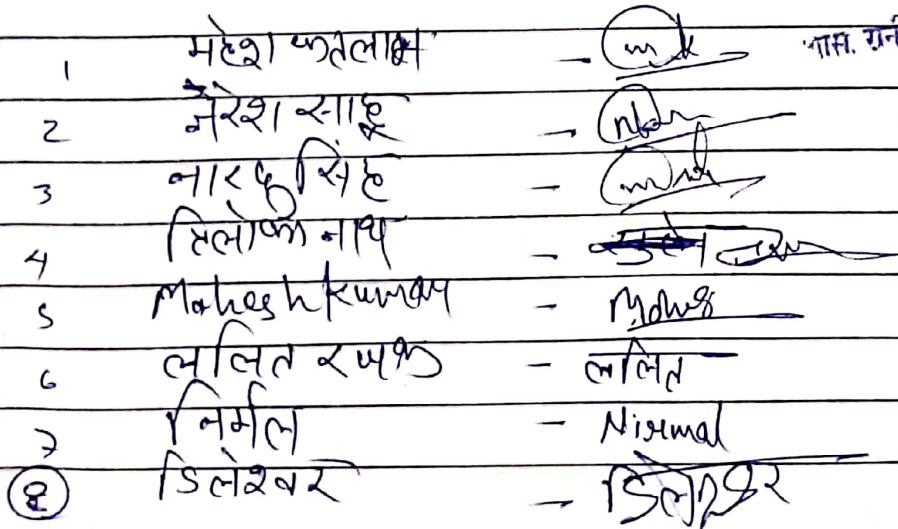 1 महेश कतलाम -
2 नरेश साहू -
3 नारद सिंह -
4 त्रिलोक नाथ -
5 Mahesh Kumar -
6 ललित रजक - ललित
7 निर्मल - Nirmal
8 डिलेश्वर - डिलेश्वर